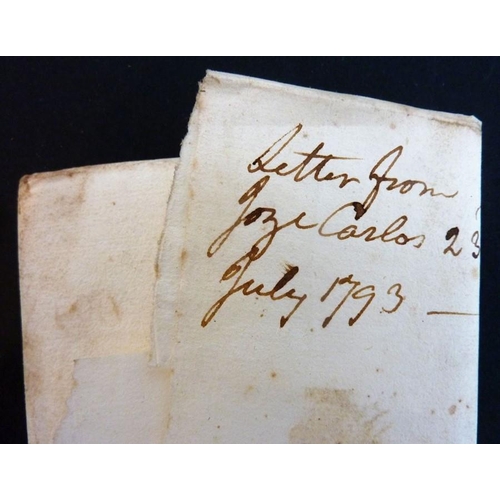 Letter from
Joze Carlos 23
July 1793 —